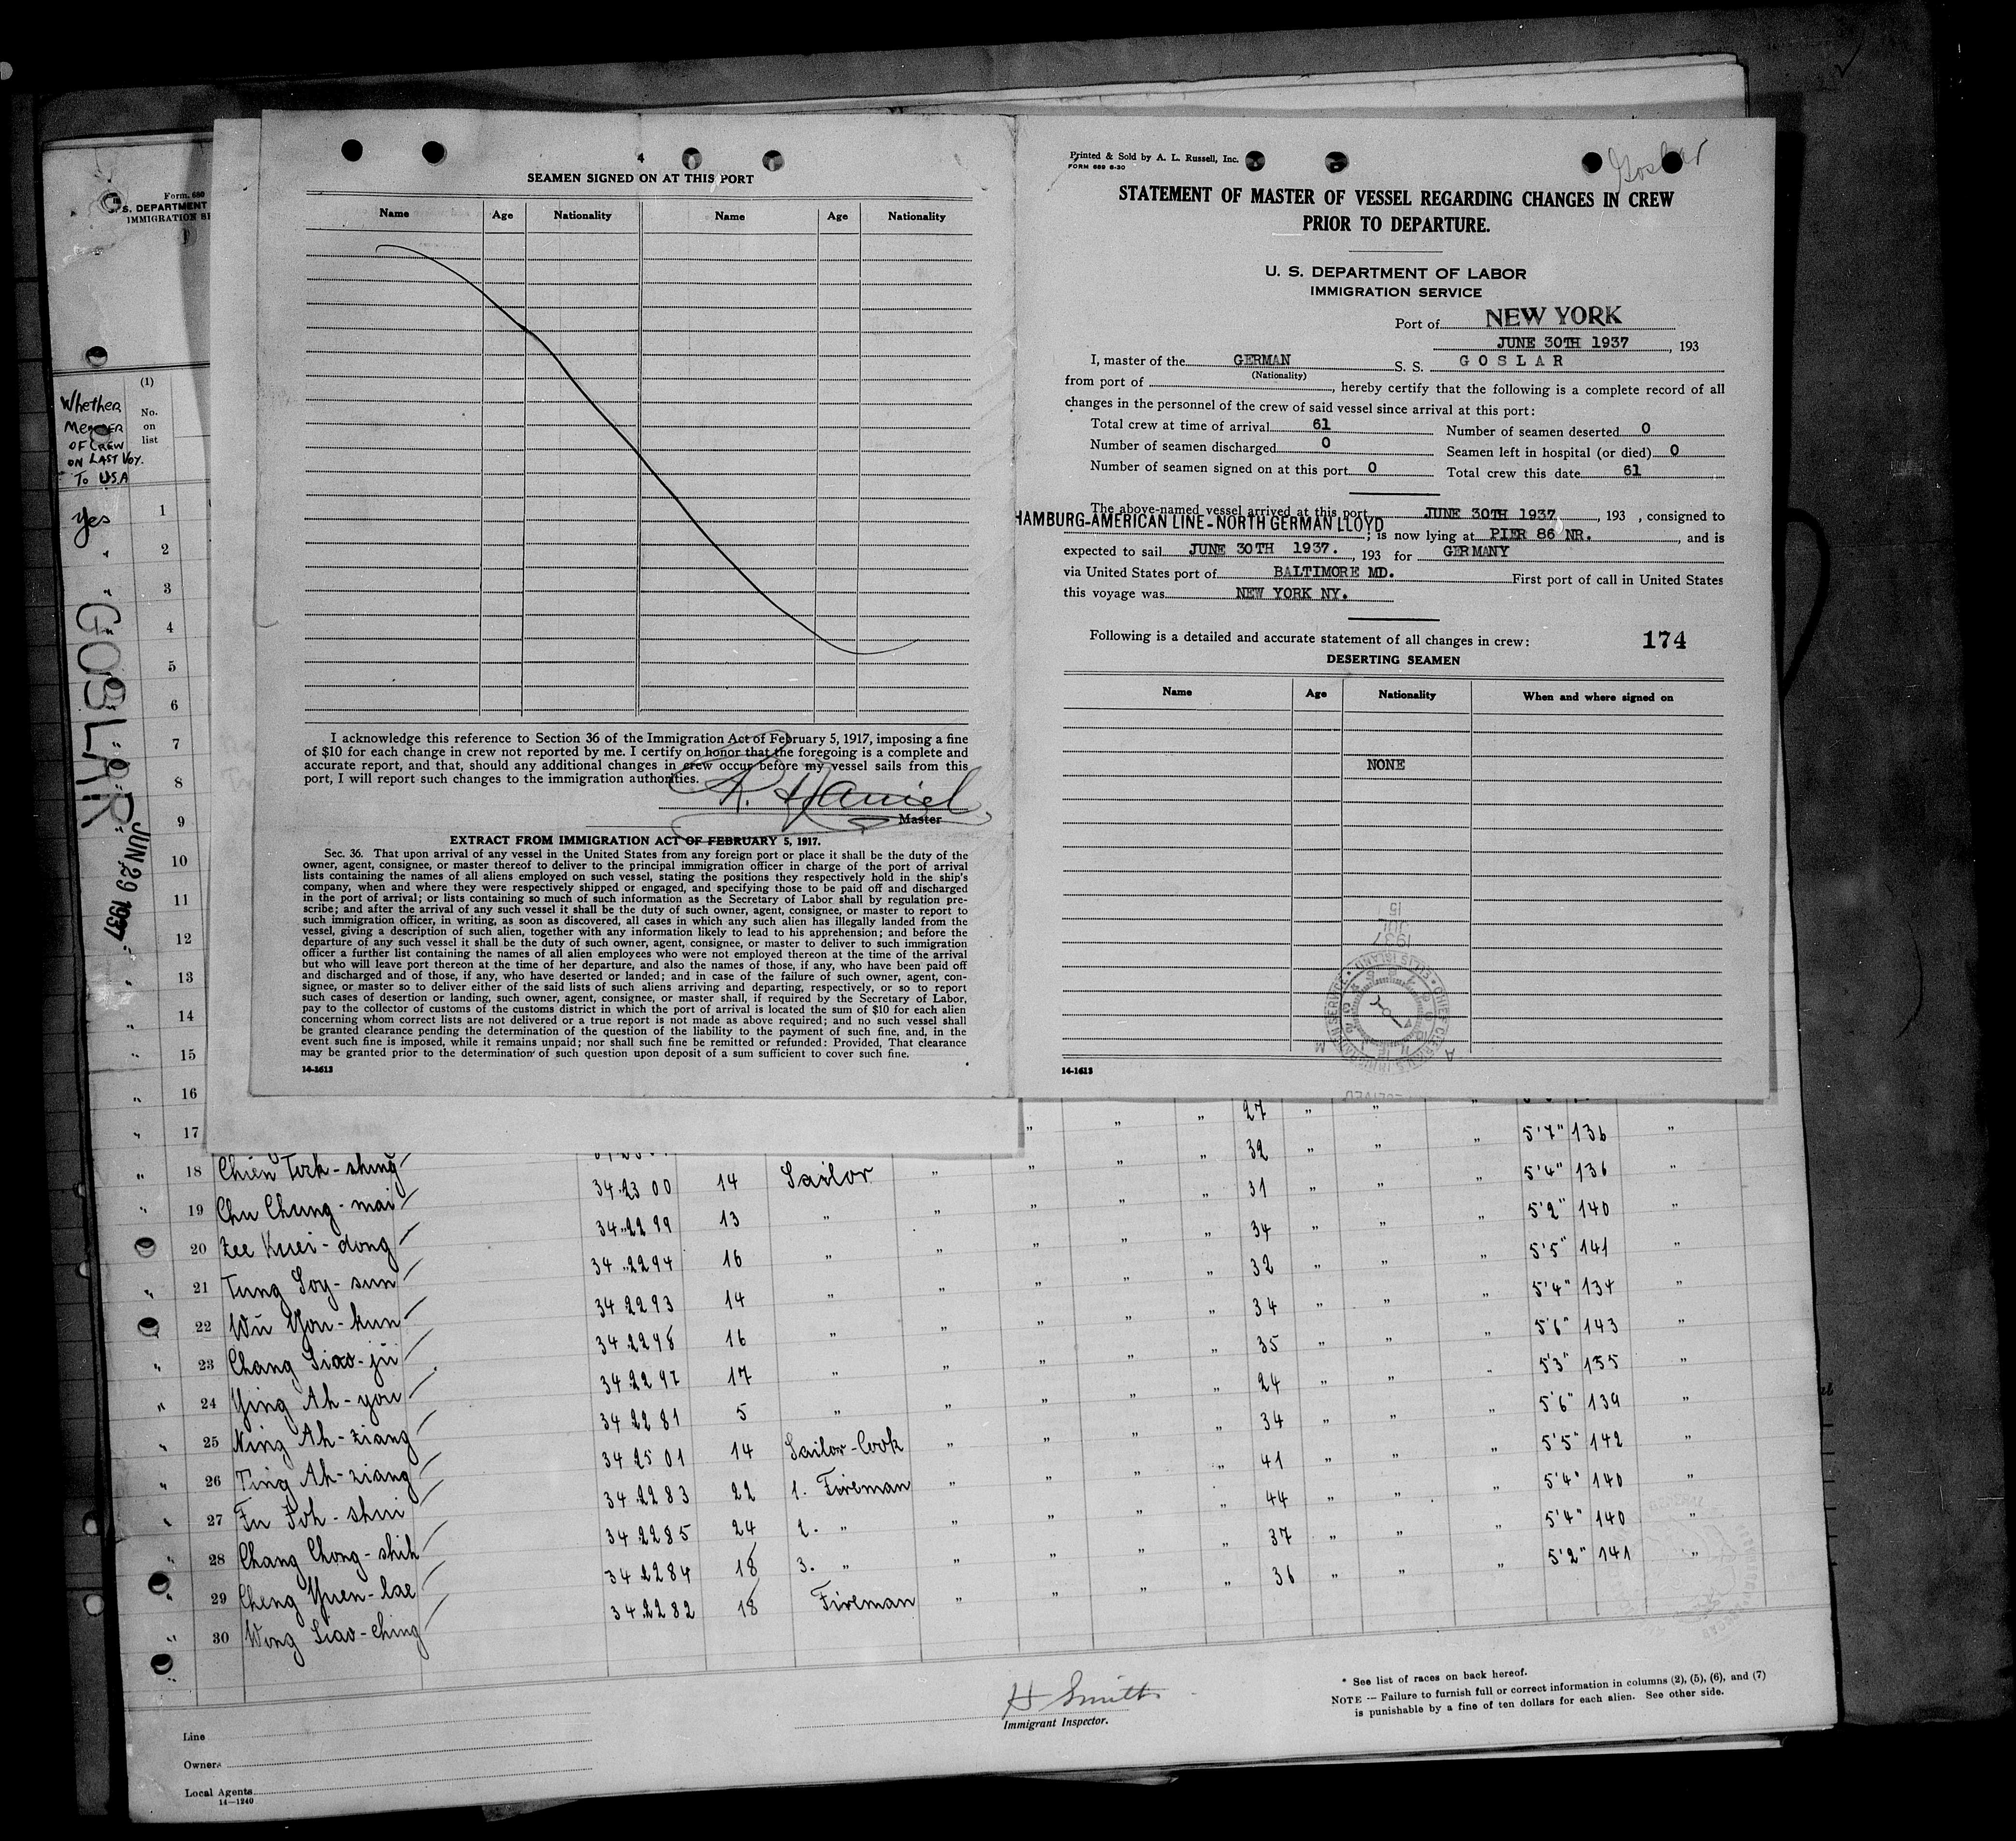 Form. 680
S. DEPARTMENT
IMMIGRATION SE
(1)
No.
on
list
Whether
Member
OF CREW
ON LAST VOY.
To USA
Yes
GOSLAR
JUN 29 1937
1
2
3
4
5
6
7
8
9
10
11
12
13
14
15
16
17
4
SEAMEN SIGNED ON AT THIS PORT
Name Age Nationality Name Age Nationality
I acknowledge this reference to Section 36 of the Immigration Act of February 5, 1917, imposing a fine
of $10 for each change in crew not reported by me. I certify on honor that the foregoing is a complete and
accurate report, and that, should any additional changes in crew occur before my vessel sails from this
port, I will report such changes to the immigration authorities.
R. Daniel
Master
EXTRACT FROM IMMIGRATION ACT OF FEBRUARY 5, 1917.
Sec. 36. That upon arrival of any vessel in the United States from any foreign port or place it shall be the duty of the
owner, agent, consignee, or master thereof to deliver to the principal immigration officer in charge of the port of arrival
lists containing the names of all aliens employed on such vessel, stating the positions they respectively hold in the ship's
company, when and where they were respectively shipped or engaged, and specifying those to be paid off and discharged
in the port of arrival; or lists containing so much of such information as the Secretary of Labor shall by regulation pre-
scribe; and after the arrival of any such vessel it shall be the duty of such owner, agent, consignee, or master to report to
such immigration officer, in writing, as soon as discovered, all cases in which any such alien has illegally landed from the
vessel, giving a description of such alien, together with any information likely to lead to his apprehension; and before the
departure of any such vessel it shall be the duty of such owner, agent, consignee, or master to deliver to such immigration
officer a further list containing the names of all alien employees who were not employed thereon at the time of the arrival
but who will leave port thereon at the time of her departure, and also the names of those, if any, who have been paid off
and discharged and of those, if any, who have deserted or landed; and in case of the failure of such owner, agent, con-
signee, or master so to deliver either of the said lists of such aliens arriving and departing, respectively, or so to report
such cases of desertion or landing, such owner, agent, consignee, or master shall, if required by the Secretary of Labor,
pay to the collector of customs of the customs district in which the port of arrival is located the sum of $10 for each alien
concerning whom correct lists are not delivered or a true report is not made as above required; and no such vessel shall
be granted clearance pending the determination of the question of the liability to the payment of such fine, and, in the
event such fine is imposed, while it remains unpaid; nor shall such fine be remitted or refunded: Provided, That clearance
may be granted prior to the determination of such question upon deposit of a sum sufficient to cover such fine.
14-1613
Printed & Sold by A. L. Russell, Inc.
FORM 689 6-30
Goslar
STATEMENT OF MASTER OF VESSEL REGARDING CHANGES IN CREW
PRIOR TO DEPARTURE.
U. S. DEPARTMENT OF LABOR
IMMIGRATION SERVICE
Port of NEW YORK
JUNE 30TH 1937, 193
I, master of the GERMAN S. S. GOSLAR
(Nationality)
from port of , hereby certify that the following is a complete record of all
changes in the personnel of the crew of said vessel since arrival at this port:
Total crew at time of arrival 61 Number of seamen deserted 0
Number of seamen discharged 0 Seamen left in hospital (or died) 0
Number of seamen signed on at this port 0 Total crew this date 61
The above-named vessel arrived at this port JUNE 30TH 1937, 193 , consigned to
HAMBURG-AMERICAN LINE - NORTH GERMAN LLOYD; is now lying at PIER 86 NR. , and is
expected to sail JUNE 30TH 1937. , 193 for GERMANY
via United States port of BALTIMORE MD. First port of call in United States
this voyage was NEW YORK NY.
Following is a detailed and accurate statement of all changes in crew: 174
DESERTING SEAMEN
Name Age Nationality When and where signed on
NONE
1937
JUL
15
CHIEF CLERK U.S. IMMIGRATION SERVICE ELLIS ISLAND
A M
14-1613
" " " 27 " "
" " " 32 " " " 5'7" 136 "
18 Chien Tock-shing 34.23 00 14 Sailor " " " " 31 " " " 5'4" 136 "
19 Chu Chung-mai 34.2299 13 " " " " " 34 " " " 5'2" 140 "
20 Zee Kuei-dong 34.2294 16 " " " " " 32 " " " 5'5" 141 "
21 Tung Soy-sun 34 2293 14 " " " " " 34 " " " 5'4" 134 "
22 Wu You-kun 34.2298 16 " " " " " 35 " " " 5'6" 143 "
23 Chang Siao-jü 34.2297 17 " " " " " 24 " " " 5'3" 155 "
24 Ying Ah-you 34 2281 5 " " " " " 34 " " " 5'6" 139 "
25 Ning Ah-ziang 34 2501 14 Sailor-Cook " " " " 41 " " " 5'5" 142 "
26 Ting Ah-ziang 34.2283 22 1. Fireman " " " " 44 " " " 5'4" 140 "
27 Fu Foh-shui 34.2285 24 2. " " " " " 37 " " " 5'4" 140 "
28 Chang Chong-shih 34 2284 18 3. " " " " " 36 " " " 5'2" 141 "
29 Cheng Yuen-lae 34.2282 18 Fireman " " " "
30 Wong Siao-ching
H Smith
Immigrant Inspector.
* See list of races on back hereof.
NOTE — Failure to furnish full or correct information in columns (2), (5), (6), and (7)
is punishable by a fine of ten dollars for each alien. See other side.
Line
Owners
Local Agents
14—1240